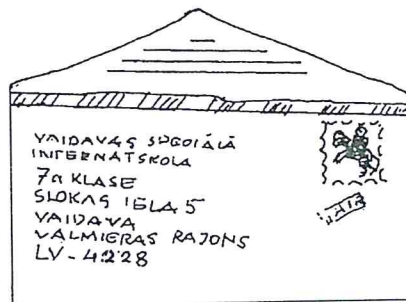 VAIDAVAS SPECIĀLĀ
INTERNĀTSKOLA
7a KLASE
SLOKAS IELA 5
VAIDAVA
VALMIERAS RAJONS
LV-4228